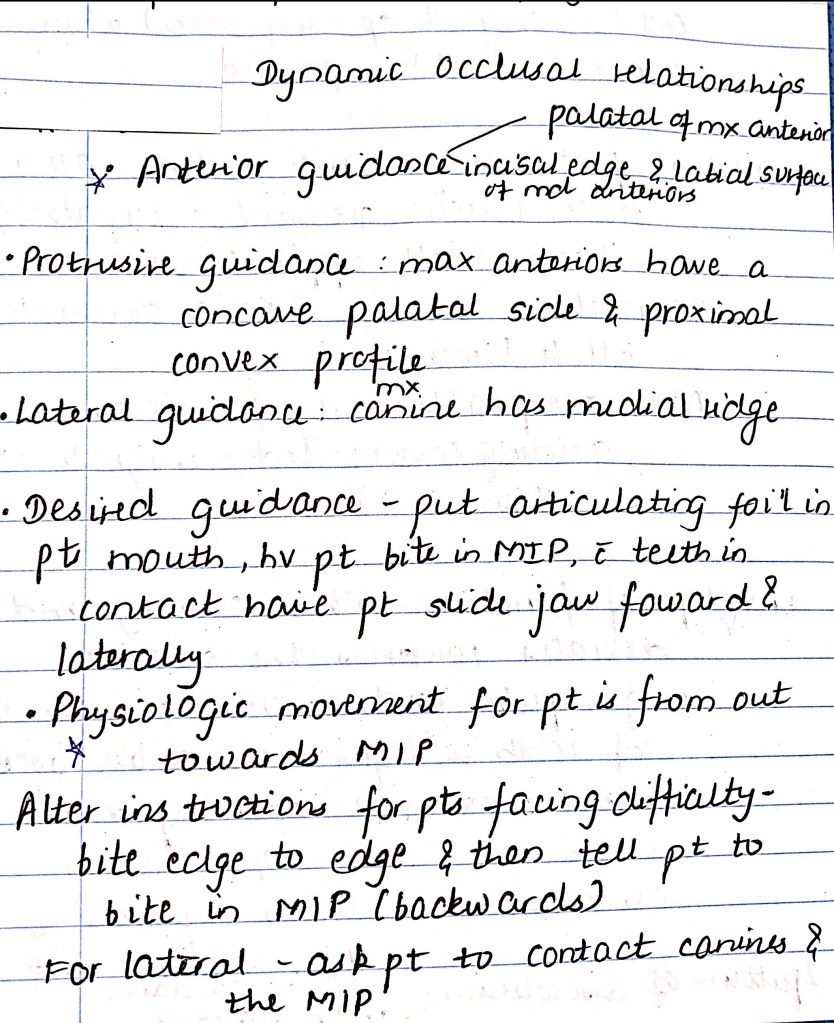 Dynamic occlusal relationships
palatal of mx anterior
* Anterior guidance incisal edge & labial surface
of md anteriors
• Protrusive guidance : max anteriors have a
concave palatal side & proximal
convex profile
mx
• Lateral guidance : canine has medial ridge
• Desired guidance - put articulating foil in
pt mouth, hv pt bite in MIP, c̄ teeth in
contact have pt slide jaw foward &
laterally
• Physiologic movement for pt is from out
* towards MIP
Alter instructions for pts facing difficulty -
bite edge to edge & then tell pt to
bite in MIP (backwards)
For lateral - ask pt to contact canines &
the MIP